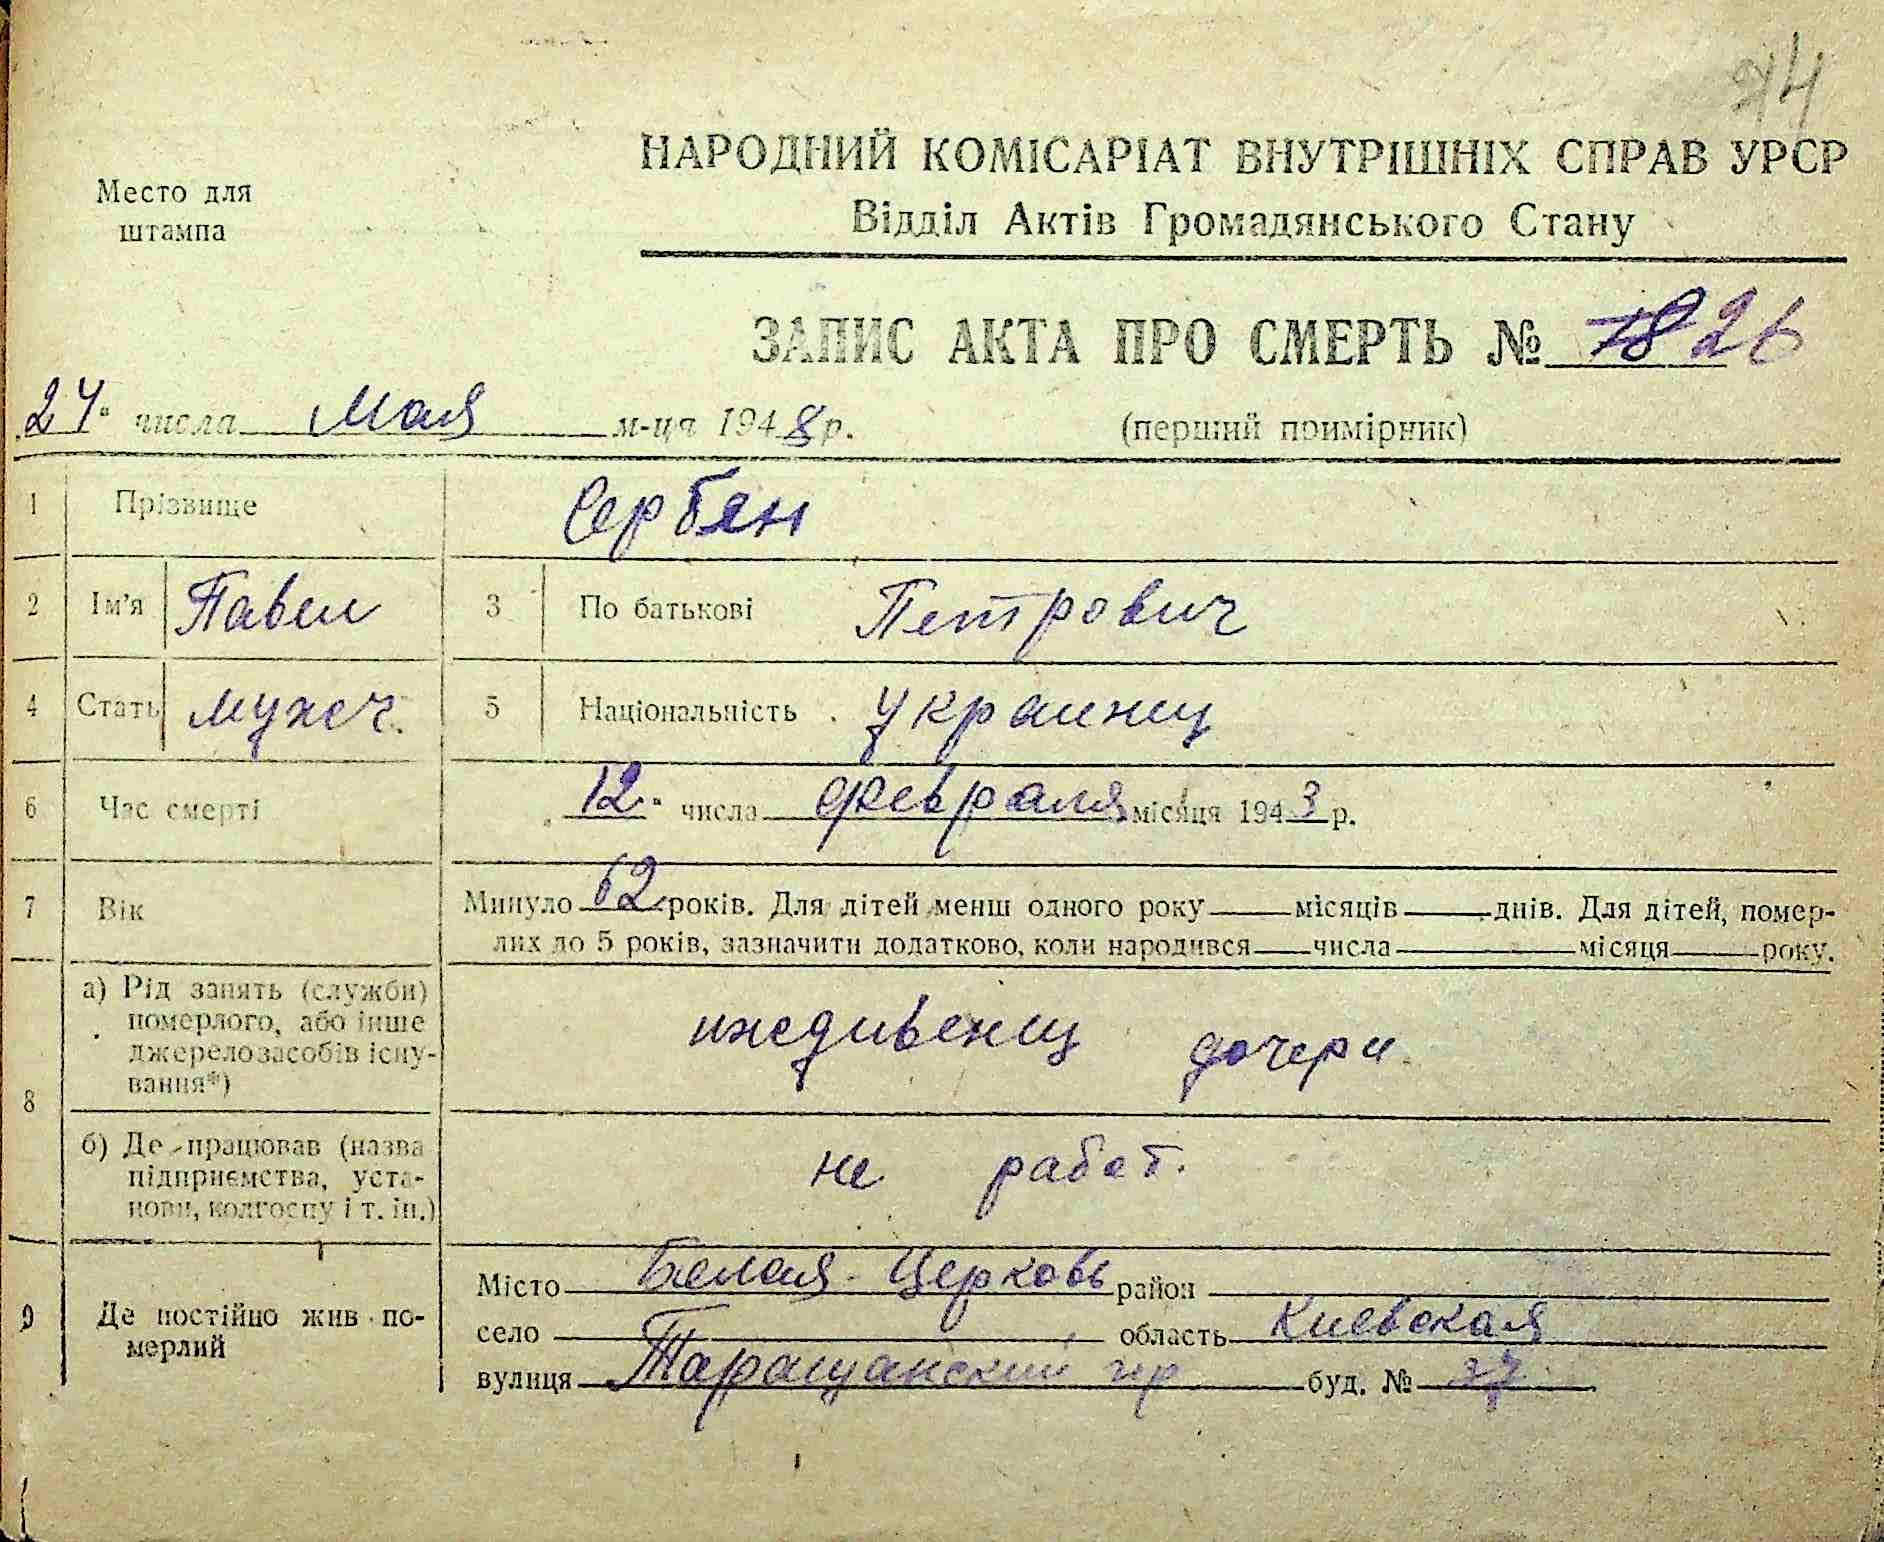 74
НАРОДНИЙ КОМІСАРІАТ ВНУТРІШНІХ СПРАВ УРСР
Место для
штампа
Відділ Актів Громадянського Стану
ЗАПИС АКТА ПРО СМЕРТЬ № 7826
24 числа Мая м-ця 1948 р. (перший примірник)
1 Прізвище Сербен
2 Ім'я Павел 3 По батькові Петрович
4 Стать мужч. 5 Національність украинец
6 Час смерті 12 числа февраля місяця 1943 р.
7 Вік Минуло 62 років. Для дітей менш одного року місяців днів. Для дітей, помер-
лих до 5 років, зазначити додатково, коли народився числа місяця року.
8 а) Рід занять (служби)
померлого, або інше
джерело засобів існу-
вання*)
иждивенец дочери
б) Де працював (назва
підприємства, уста-
нови, колгоспу і т. ін.)
не работ.
9 Де постійно жив по-
мерлий
Місто Белая-Церковь район
село область Киевская
вулиця Таращанский пр буд. № 37